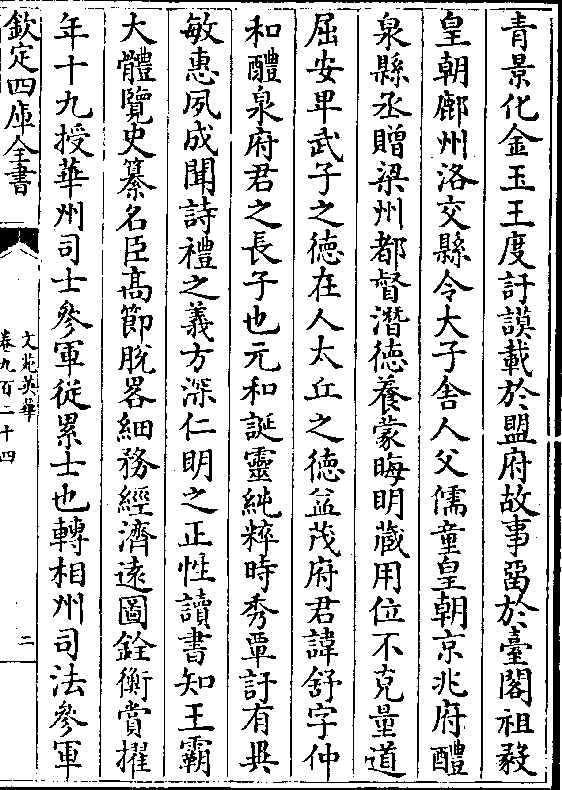 青景化金玉王度訏謨載於盟府故事畱於臺閣祖毅
皇朝鄜州洛交縣令大子舎人父儒童皇朝京兆府醴
泉縣丞贈梁州都督潛徳養蒙晦明蔵用位不克量道
屈安卑武子之徳在人太丘之徳益茂府君諱舒字仲
和醴泉府君之長子也元和誕靈純粹時秀覃訏有異
敏惠夙成聞詩禮之義方深仁明之正性讀書知王霸
大體覽史纂名臣髙節脫畧細務經濟逺圖銓衡賞擢
年十九授華州司士參軍從累士也轉相州司法參軍
欽定四庫全書
文苑英華
卷九百二十四
二